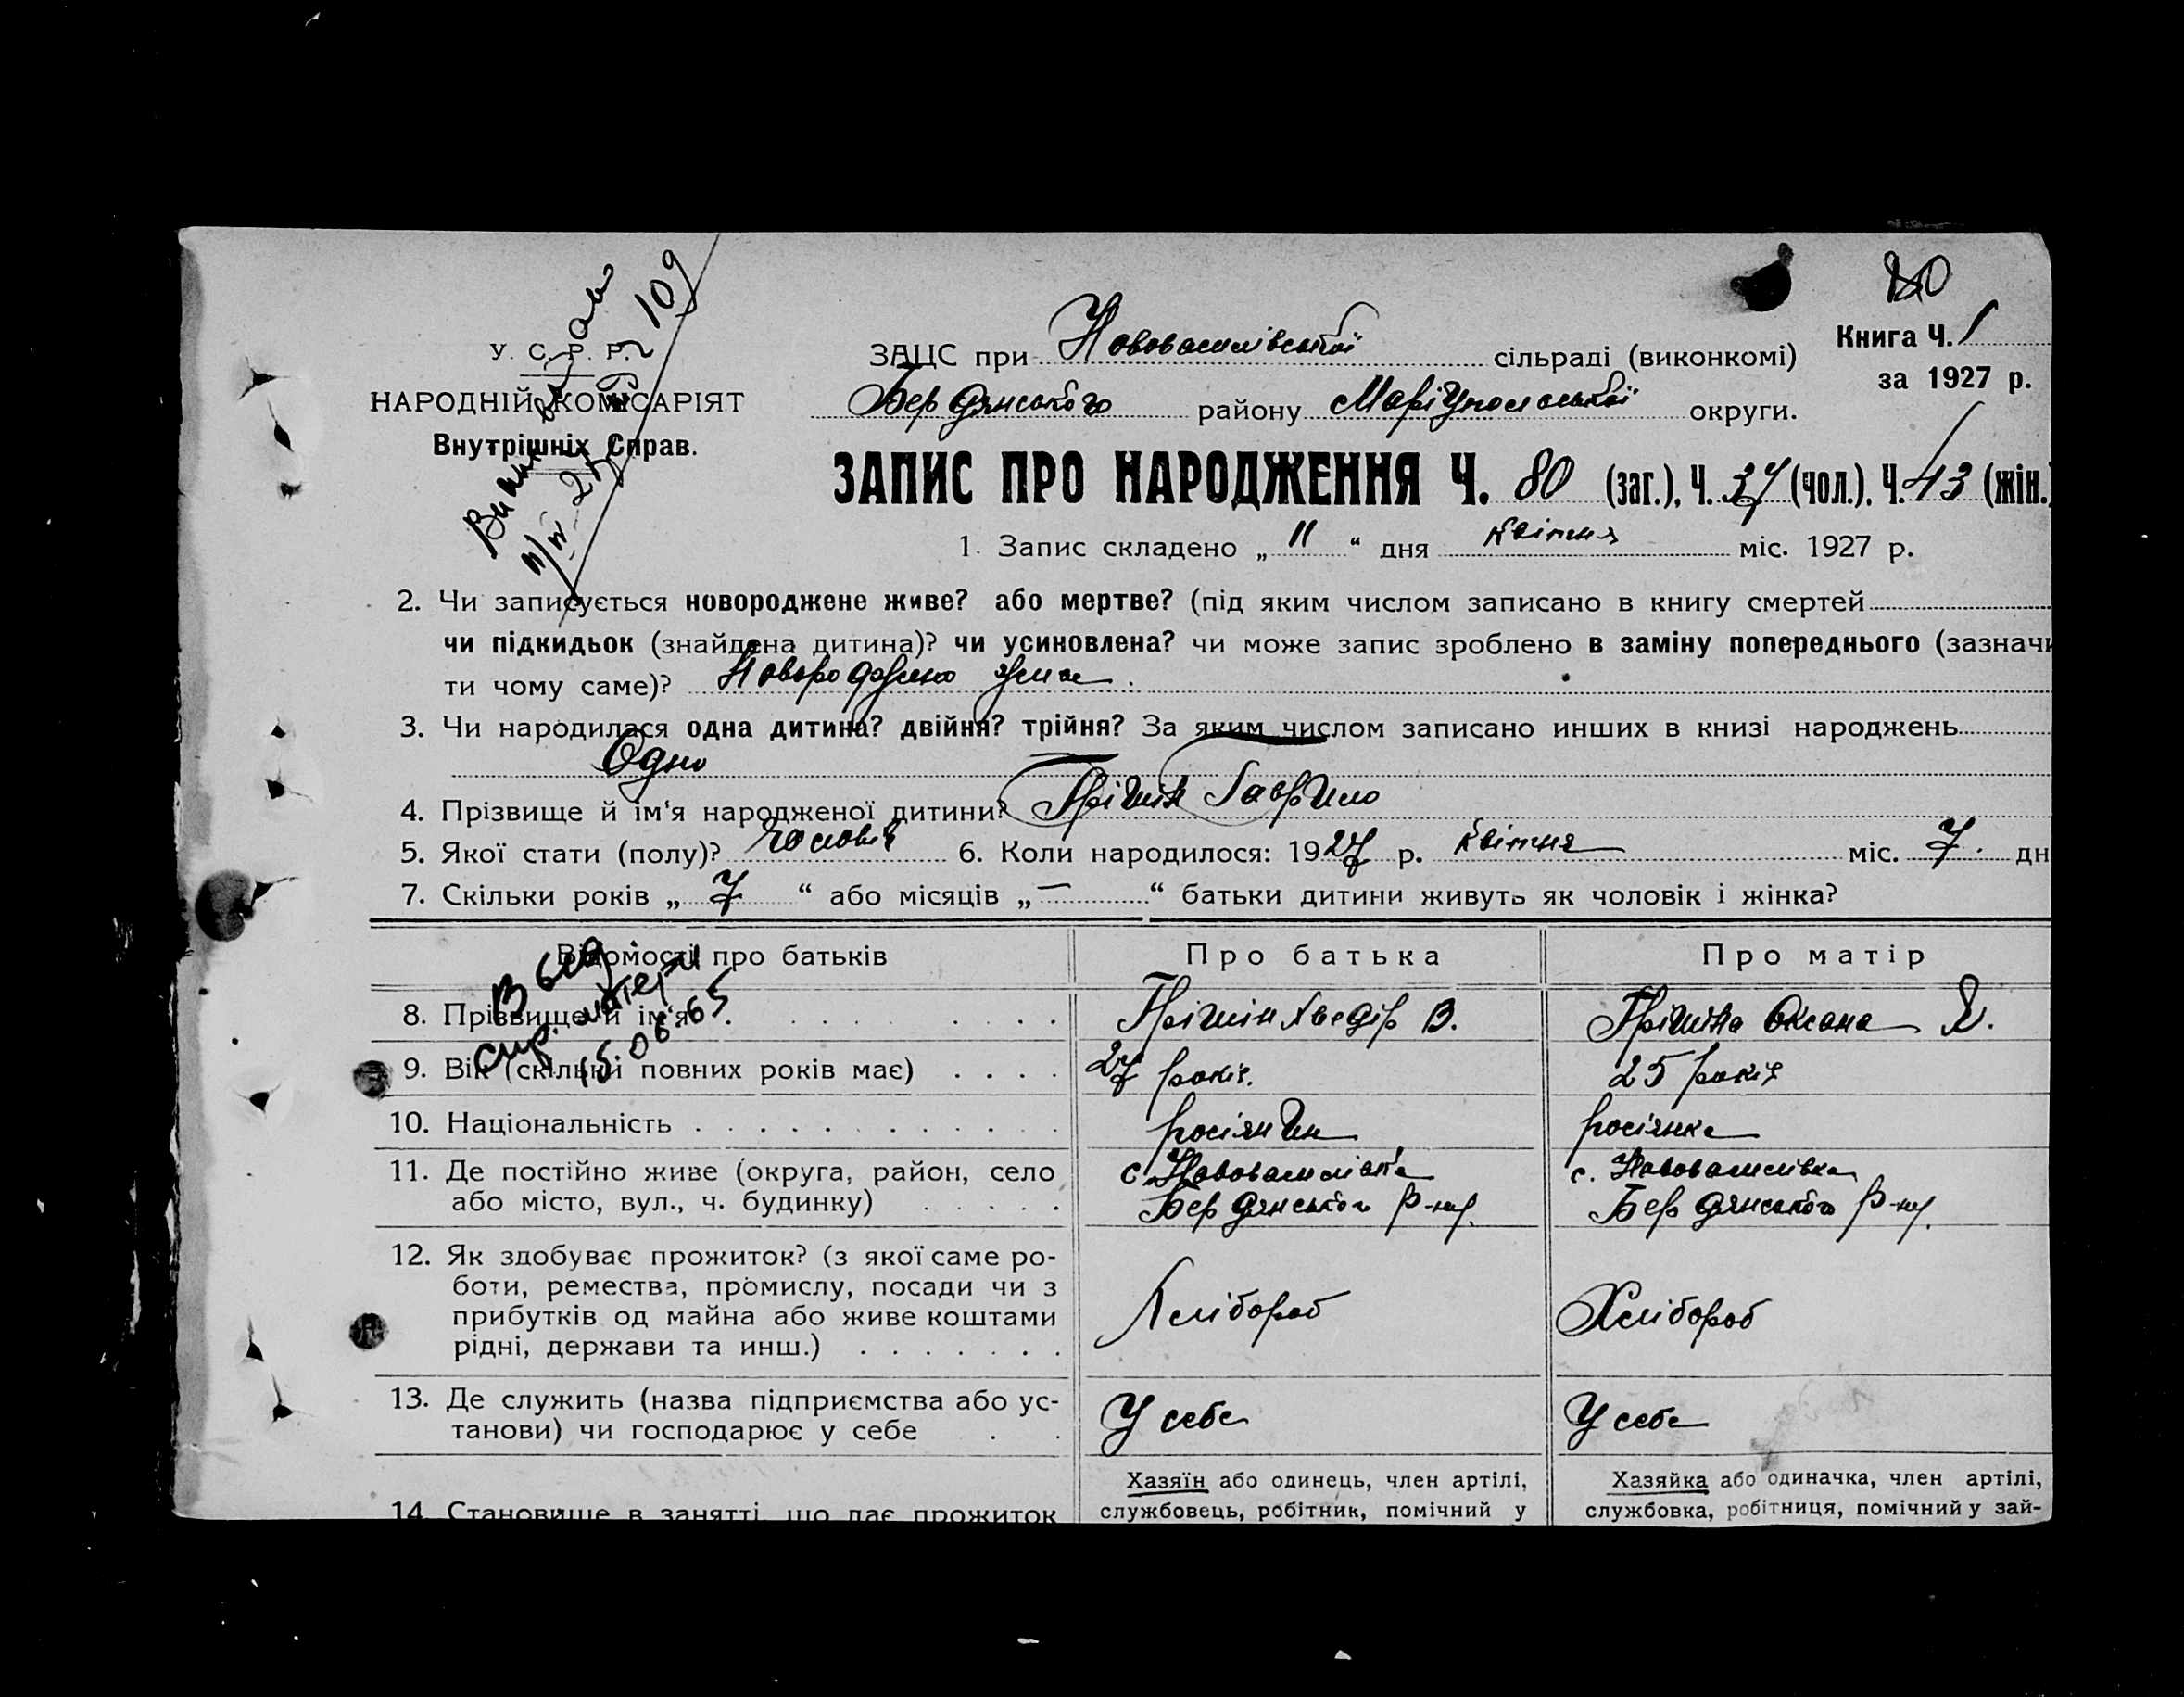 У. С. Р. Р.
НАРОДНІЙ КОМІСАРІЯТ
Внутрішніх Справ.
109
Книга Ч. 1
за 1927 р.
ЗАЦС при Нововасилівській сільраді (виконкомі)
Бердянського району Маріупольської округи.
ЗАПИС ПРО НАРОДЖЕННЯ Ч. 80 (заг.), Ч. 37 (чол.), Ч. 43 (жін.)
1. Запис складено „ 11 “ дня квітня міс. 1927 р.
2. Чи записується новороджене живе? або мертве? (під яким числом записано в книгу смертей
чи підкидьок (знайдена дитина)? чи усиновлена? чи може запис зроблено в заміну попереднього (зазначи
ти чому саме)? Новороджено живе.
3. Чи народилася одна дитина? двійня? трійня? За яким числом записано инших в книзі народжень
Одно
4. Прізвище й ім‘я народженої дитини? Грішин Гаврило
5. Якої стати (полу)? чоловік 6. Коли народилося: 1927 р. квітня міс. 7. дн
7. Скільки років „ 7 “ або місяців „ — “ батьки дитини живуть як чоловік і жінка?
Відомості про батьків Про батька Про матір
8. Прізвище й ім‘я Грішин Хведір В. Грішина Оксана Я.
9. Вік (скільки повних років має) 27 років. 25 років
15.06.65
10. Національність росіянин росіянка
11. Де постійно живе (округа, район, село с. Нововасилівка с. Нововасилівка
або місто, вул., ч. будинку) Бердянського р-ну. Бердянського р-ну.
12. Як здобуває прожиток? (з якої саме ро-
боти, ремества, промислу, посади чи з
прибутків од майна або живе коштами Хлібороб Хлібороб
рідні, держави та инш.)
13. Де служить (назва підприємства або ус- У себе У себе
танови) чи господарює у себе
Хазяїн або одинець, член артілі, Хазяйка або одиначка, член артілі,
14. Становище в занятті, що дає прожиток службовець, робітник, помічний у службовка, робітниця, помічний у зай-